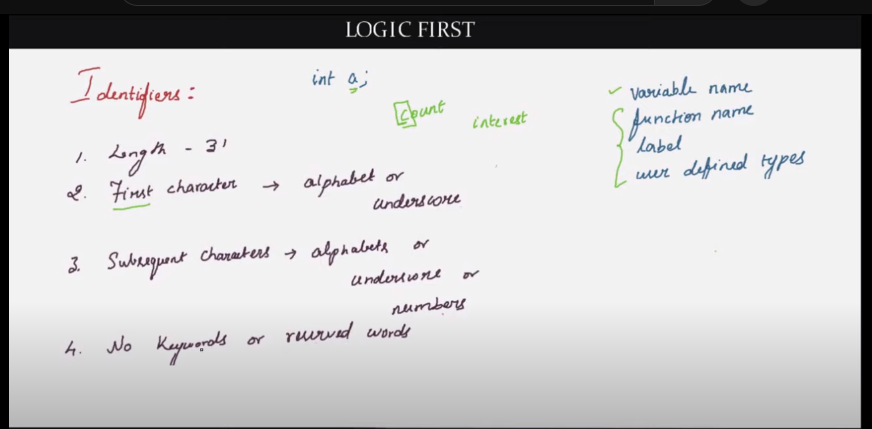 LOGIC FIRST
Identifiers:
int a;
count
interest
variable name
function name
Label
user defined types
1. Length - 31
2. First character → alphabet or
underscore
3. Subsequent characters → alphabets or
underscore or
numbers
4. No Keywords or reserved words